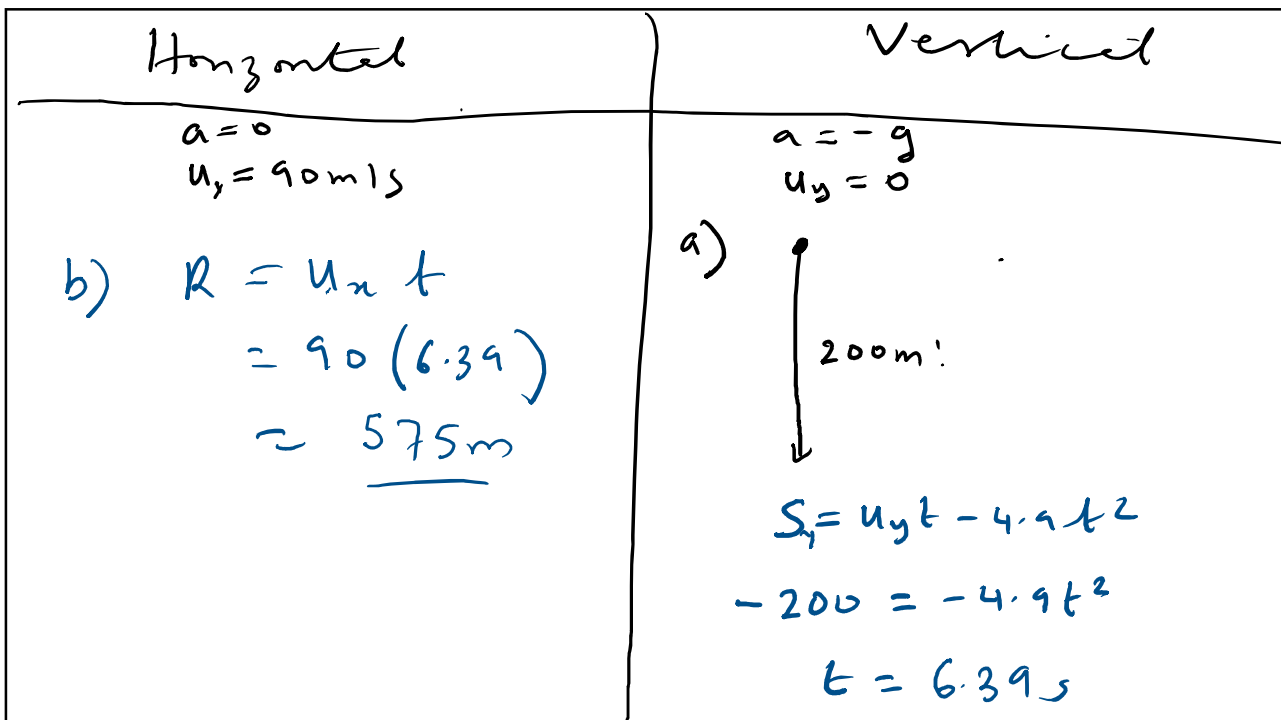 Horizontal
a = 0
uₓ = 90m/s
b) R = uₓ t
= 90 (6.39)
= 575m
Vertical
a = - g
u_y = 0
a)
200m
S_y = u_y t - 4.9 t²
- 200 = - 4.9t²
t = 6.39s